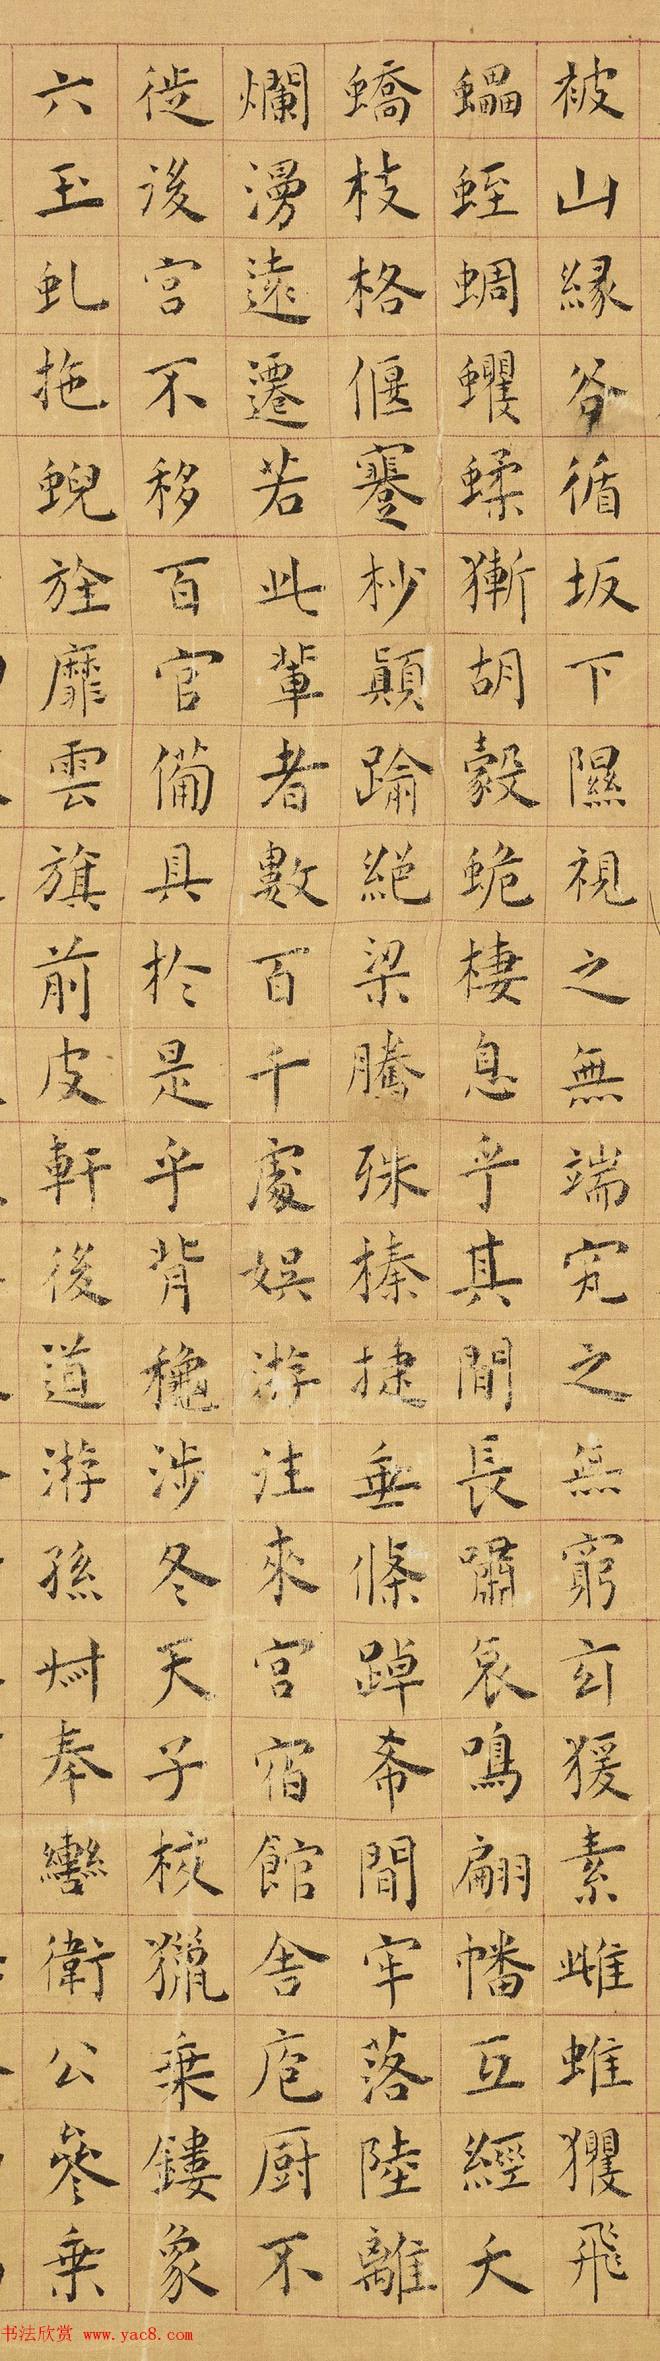 被山緣谷循坂下隰視之無端究之無窮玄猨素雌蜼玃飛
蠝蛭蜩蠼蝚獑胡豰蛫棲息乎其間長嘯哀鳴翩幡互經夭
蟜枝格偃蹇杪顛踰絕梁騰殊榛捷垂條踔希間牢落陸離
爛漫遠遷若此輩者數百千處娛游往來宮宿館舍庖厨不
徙後宮不移百官備具於是乎背穐涉冬天子校獵乗鏤象
六玉虬拖蜺旌靡雲旗前皮軒後道游孫叔奉轡衛公參乗
书法欣赏 www.yac8.com